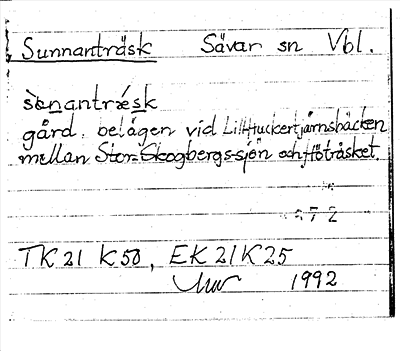 Sunnanträsk Sävar sn Vbl.
sònantrǽsk
gård, belägen vid Lill-Tuckertjärnsbäcken
mellan Stor-Skogbergssjön och Hötråsket.
72
TK 21 K 50, EK 21K25
1992